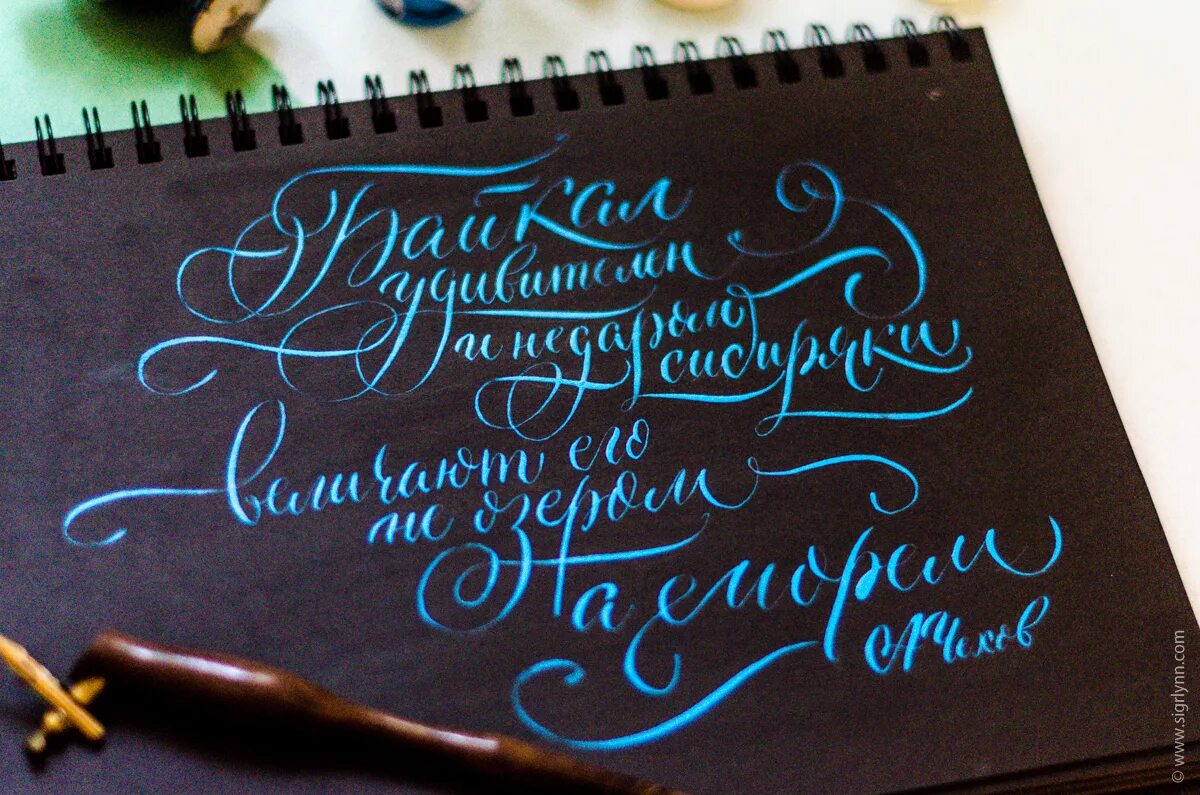 Байкал
удивителен
и недаром
сибиряки
величают его
не озером
а морем
А Чехов
© www.sigrlynn.com